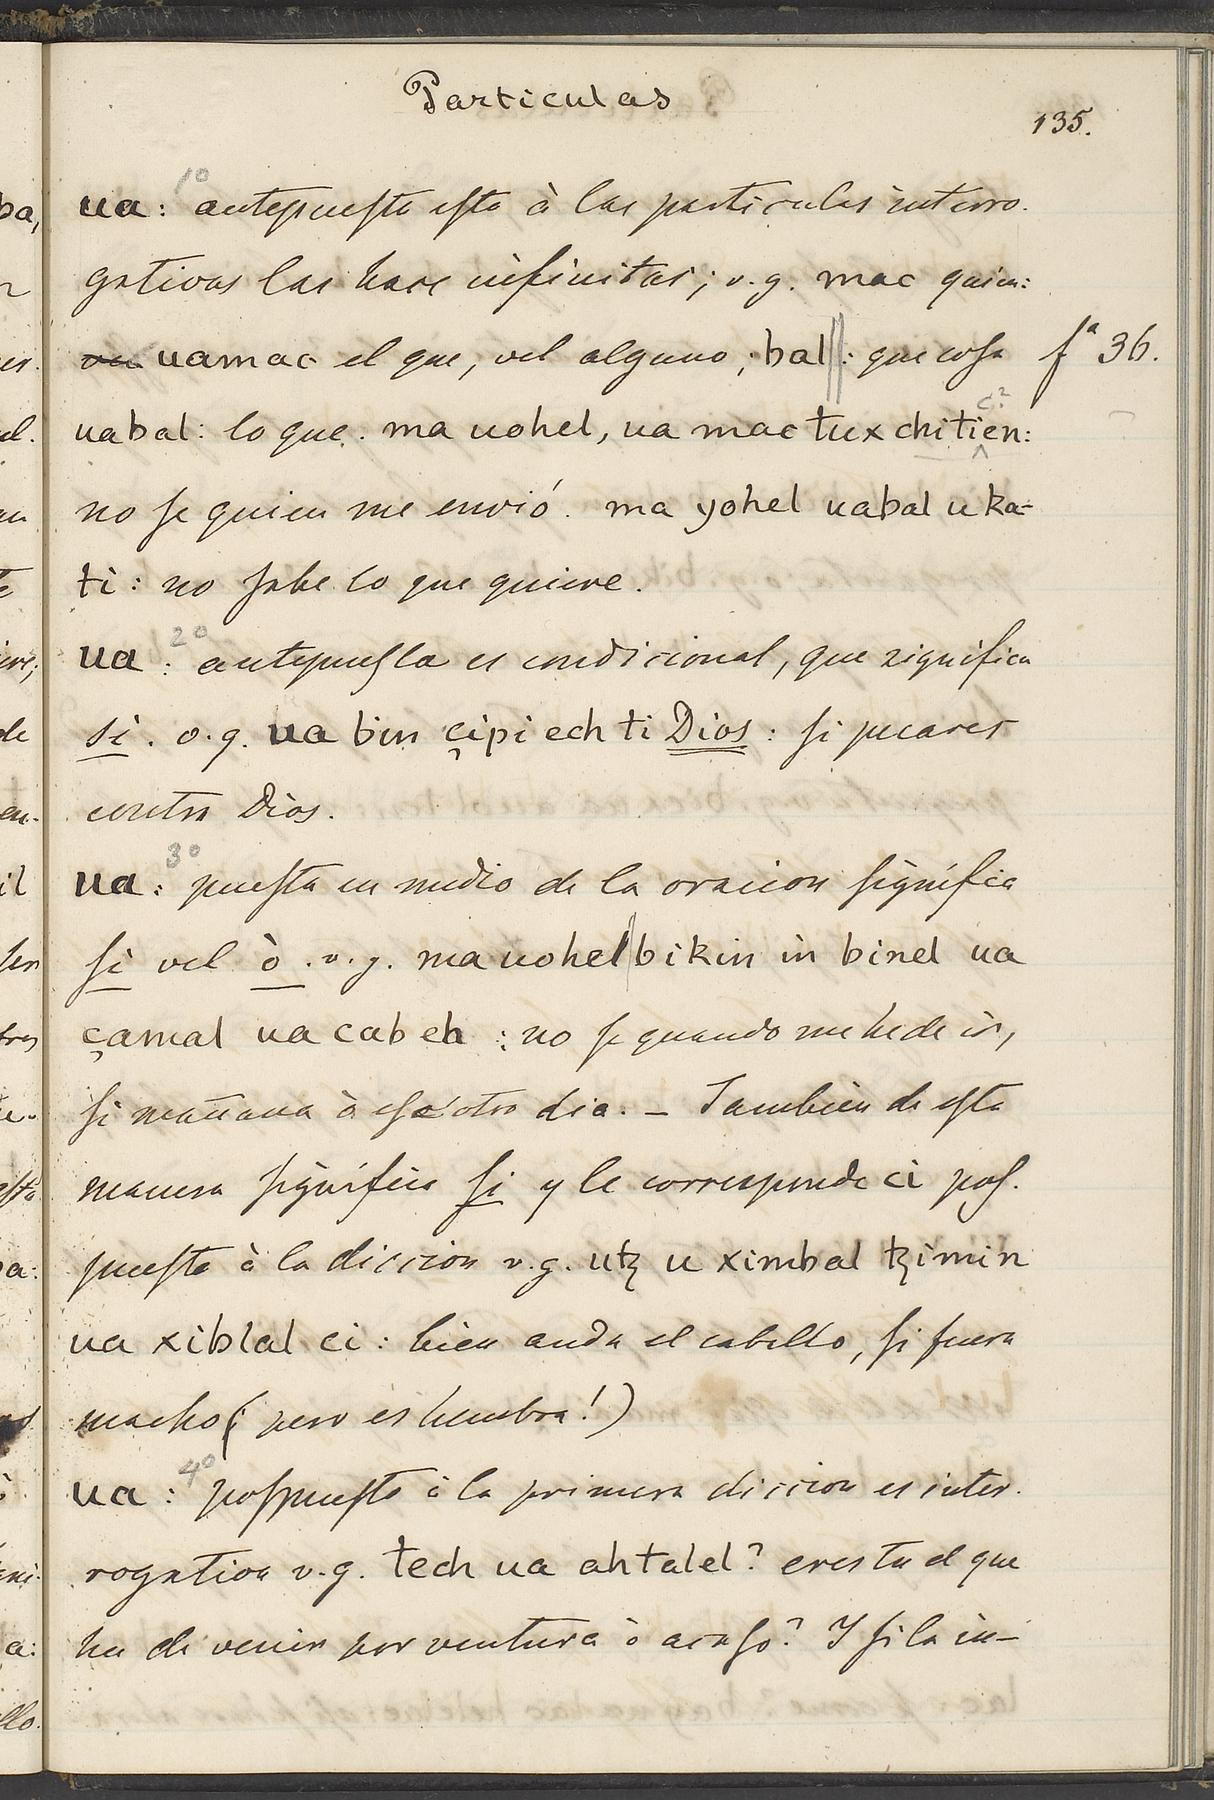 Particulas
135.
ua: 1º antepuesta esta à las particulas interro-
gativas las hace infinitas; v.g. mac quien:
uamac el que, vel alguno; bal: que cosa fª 36.
uabal: lo que. ma uohel, ua mac tux chi tien: c?
no se quien me envió. ma yohel uabal u ka-
ti: no sabe lo que quiere.
ua: 2º antepuesta es condicional, que significa
si. v.g. ua bin çipi ech ti Dios: si pecares
contra Dios.
ua: 3º puesta en medio de la oracion significa
si vel ò. v.g. ma uohel bikin in binel ua
çamal ua cabeh: no se quando me he de ir,
si mañana ò eso otro dia. – Tambien de esta
manera significa si y le corresponde ci pos-
puesto à la diccion v.g. utꜩ u ximbal tꜩimin
ua xiblal ci: bien anda el caballo, si fuera
macho (pero es hembra!)
ua: 4º pospuesta à la primera diccion es inter-
rogativa v.g. tech ua ah talel? eres tu el que
ha de venir por ventura ò acaso? I si la in-